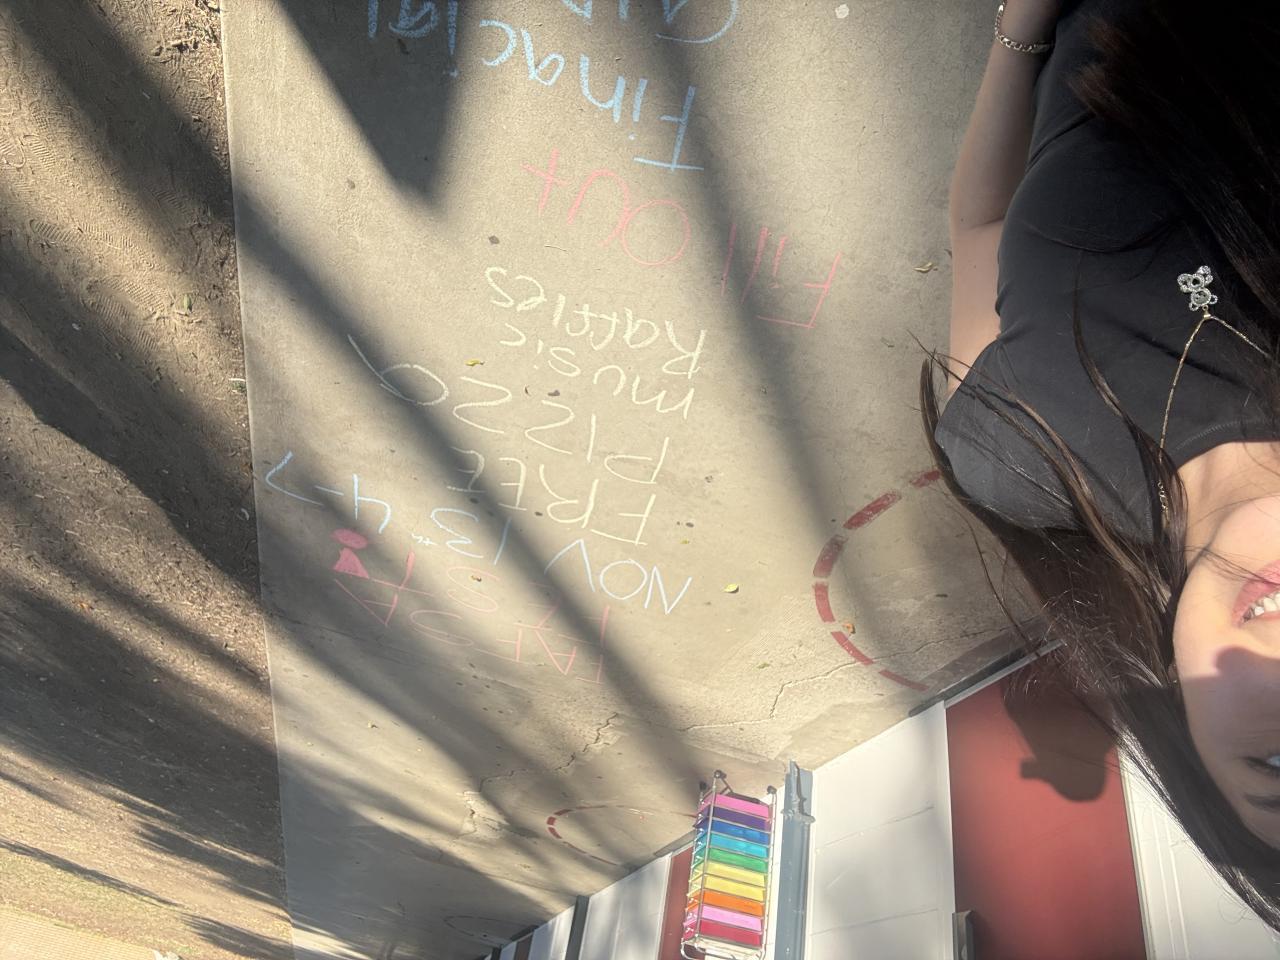 FAFSA
FEST
NOV 13th 4-7
FREE
PIZZA
music
Raffles
Fill OUt
Finacial